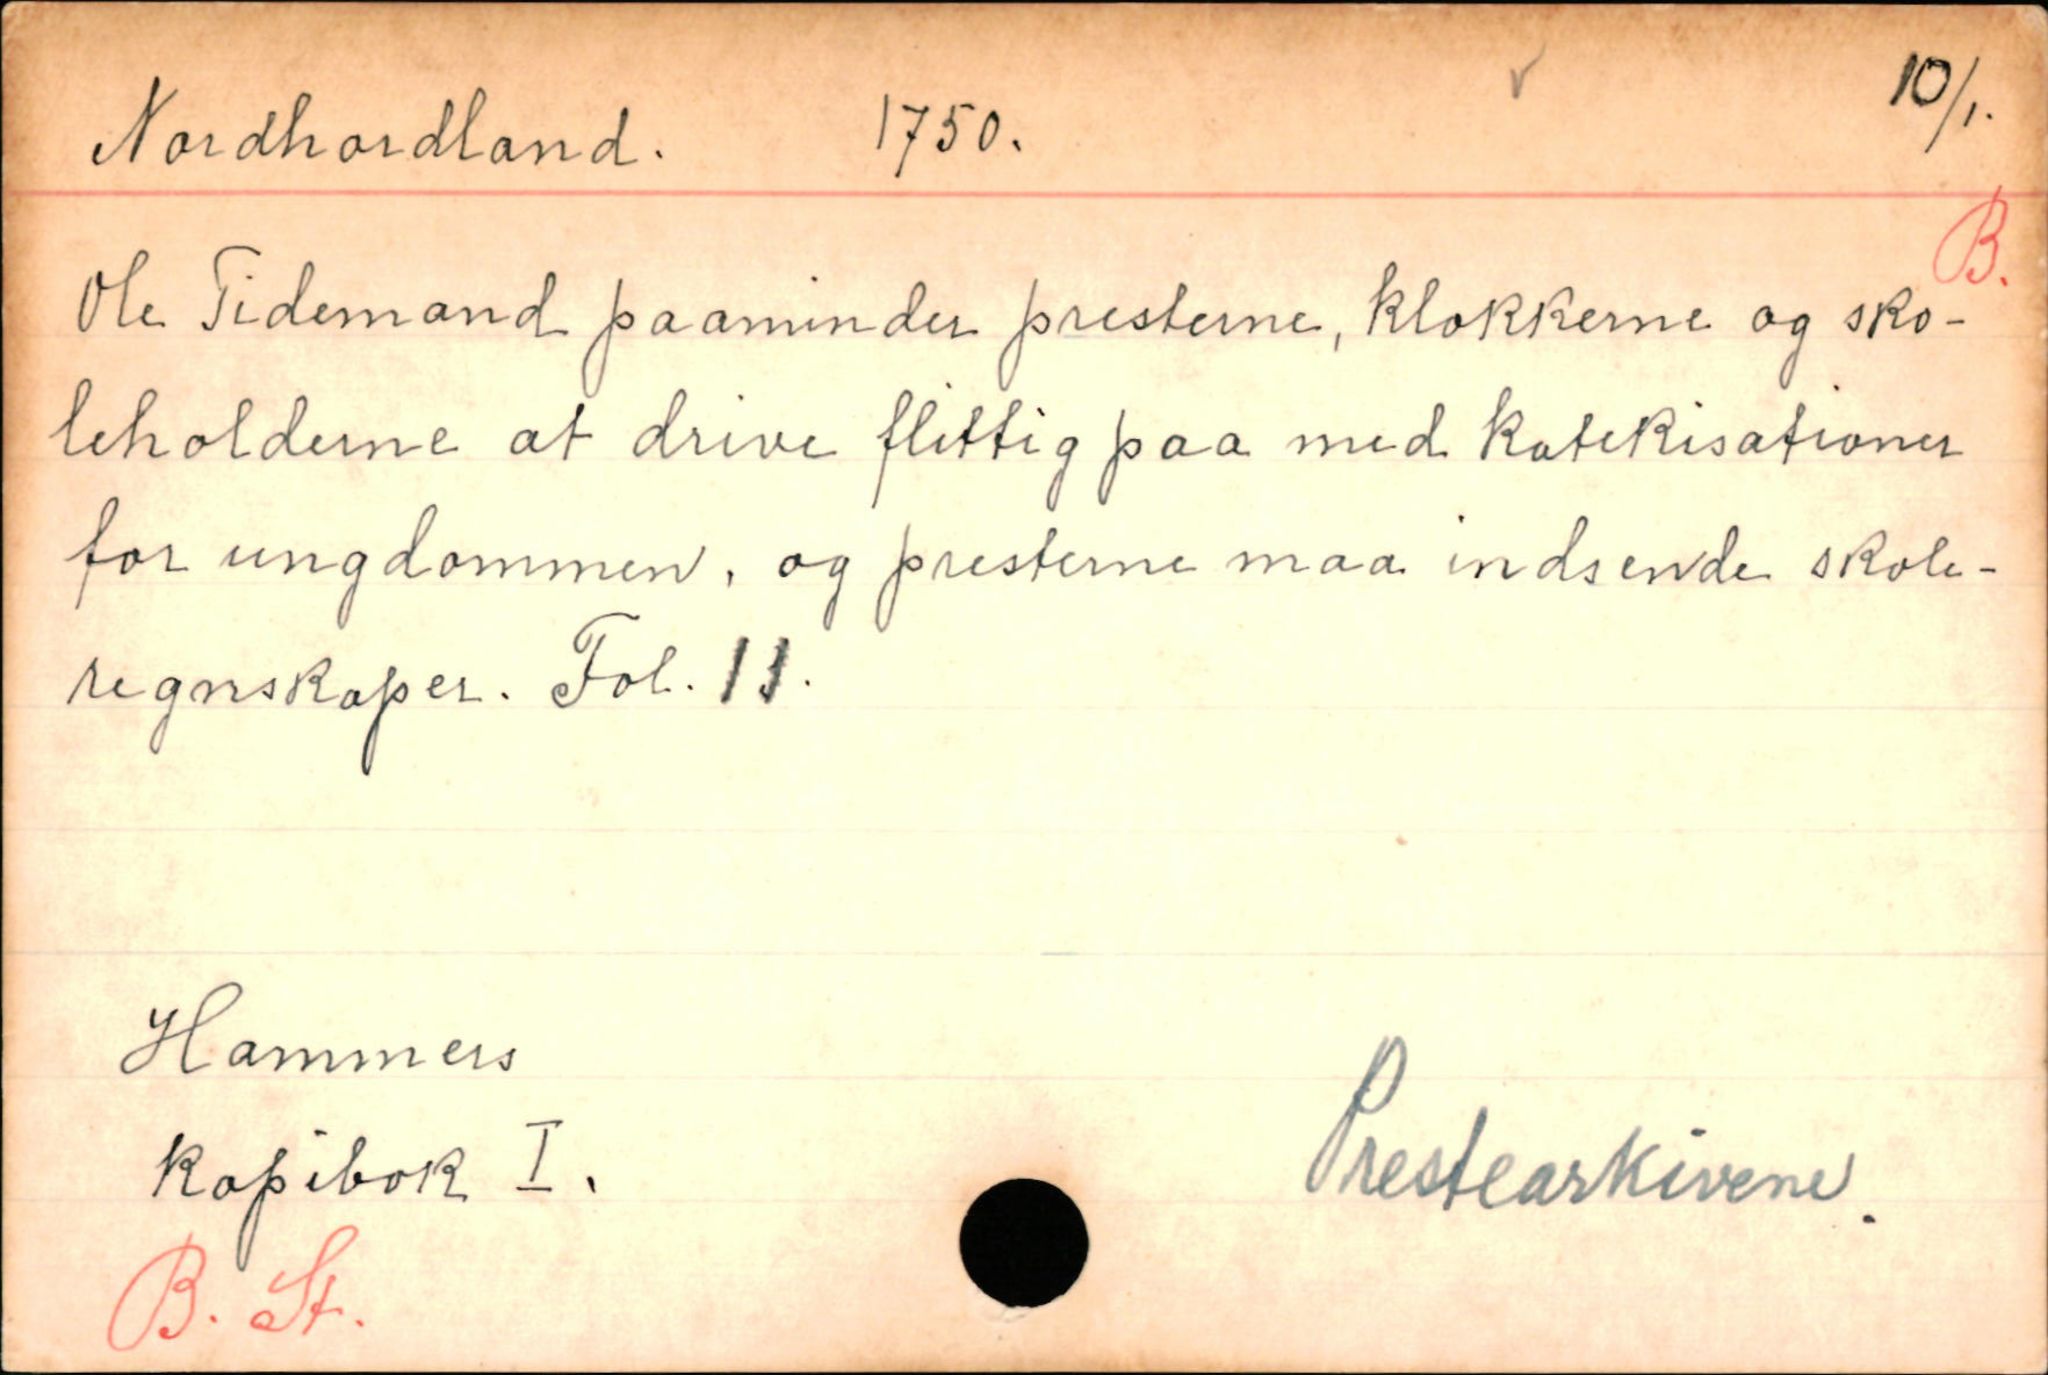 Nordhordland. 1750. 10/1.
B.
Ole Tidemand paaminder presterne, klokkerne og sko-
leholderne at drive flittig paa med katekisationer
for ungdommen, og presterne maa indsende skole-
regnskaper. Fol. 11.
Hammers
kopibok I.
Prestearkivene.
B. St.